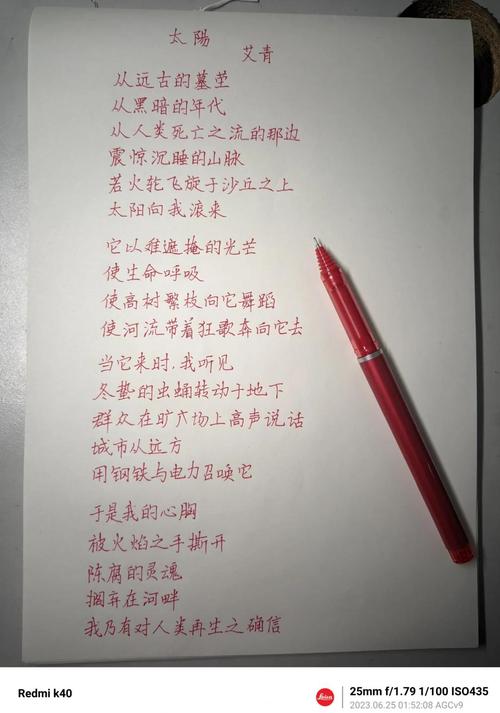 太陽
艾青
从远古的墓茔
从黑暗的年代
从人类死亡之流的那边
震惊沉睡的山脉
若火轮飞旋于沙丘之上
太阳向我滚来
它以难遮掩的光芒
使生命呼吸
使高树繁枝向它舞蹈
使河流带着狂歌奔向它去
当它来时,我听见
冬蛰的虫蛹转动于地下
群众在旷场上高声说话
城市从远方
用钢铁与电力召唤它
于是我的心胸
被火焰之手撕开
陈腐的灵魂
搁弃在河畔
我乃有对人类再生之确信
Redmi k40
Leica
25mm f/1.79 1/100 ISO435
2023.06.25 01:52:08 AGCv9